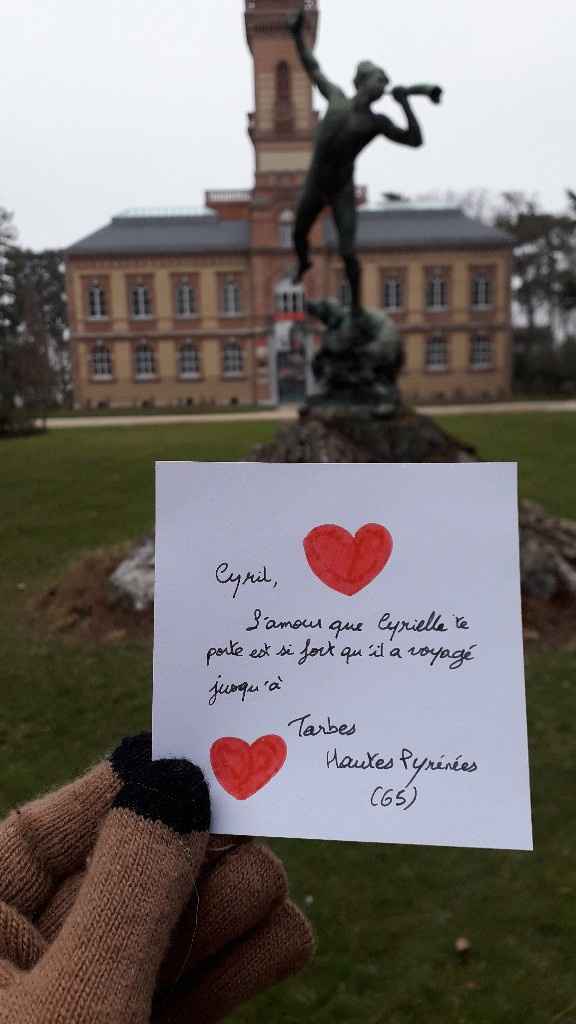 Cyril,
L'amour que Cyrielle te
porte est si fort qu'il a voyagé
jusqu'à
Tarbes
Hautes Pyrénées
(65)